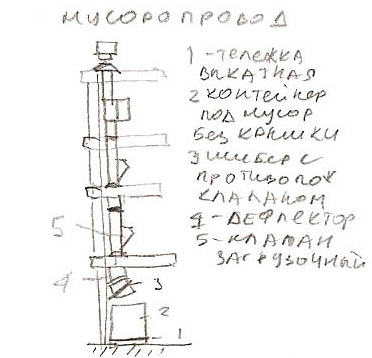 МУСОРОПРОВОД
1-ТЕЛЕЖКА
ВЫКАТНАЯ
2 КОНТЕЙНЕР
ПОД МУСОР
БЕЗ КРЫШКИ
3 ШИБЕР С
ПРОТИВОПОЖ
КЛАПАНОМ
4-ДЕФЛЕКТОР
5-КЛАПАН
ЗАГРУЗОЧНЫЙ
5
4
3
2
1